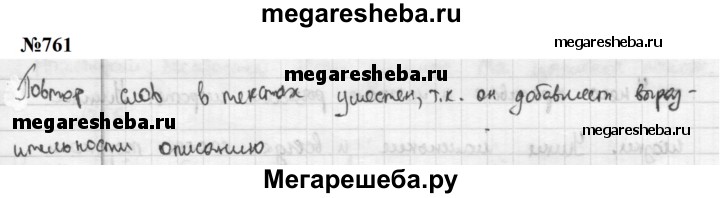 megaresheba.ru
№761
megaresheba.ru
megaresheba.ru
Повтор слов в текстах уместен, т.к. он добавляет выраз-
megaresheba.ru
megaresheba.ru
ительности описанию
Мегарешеба.ру